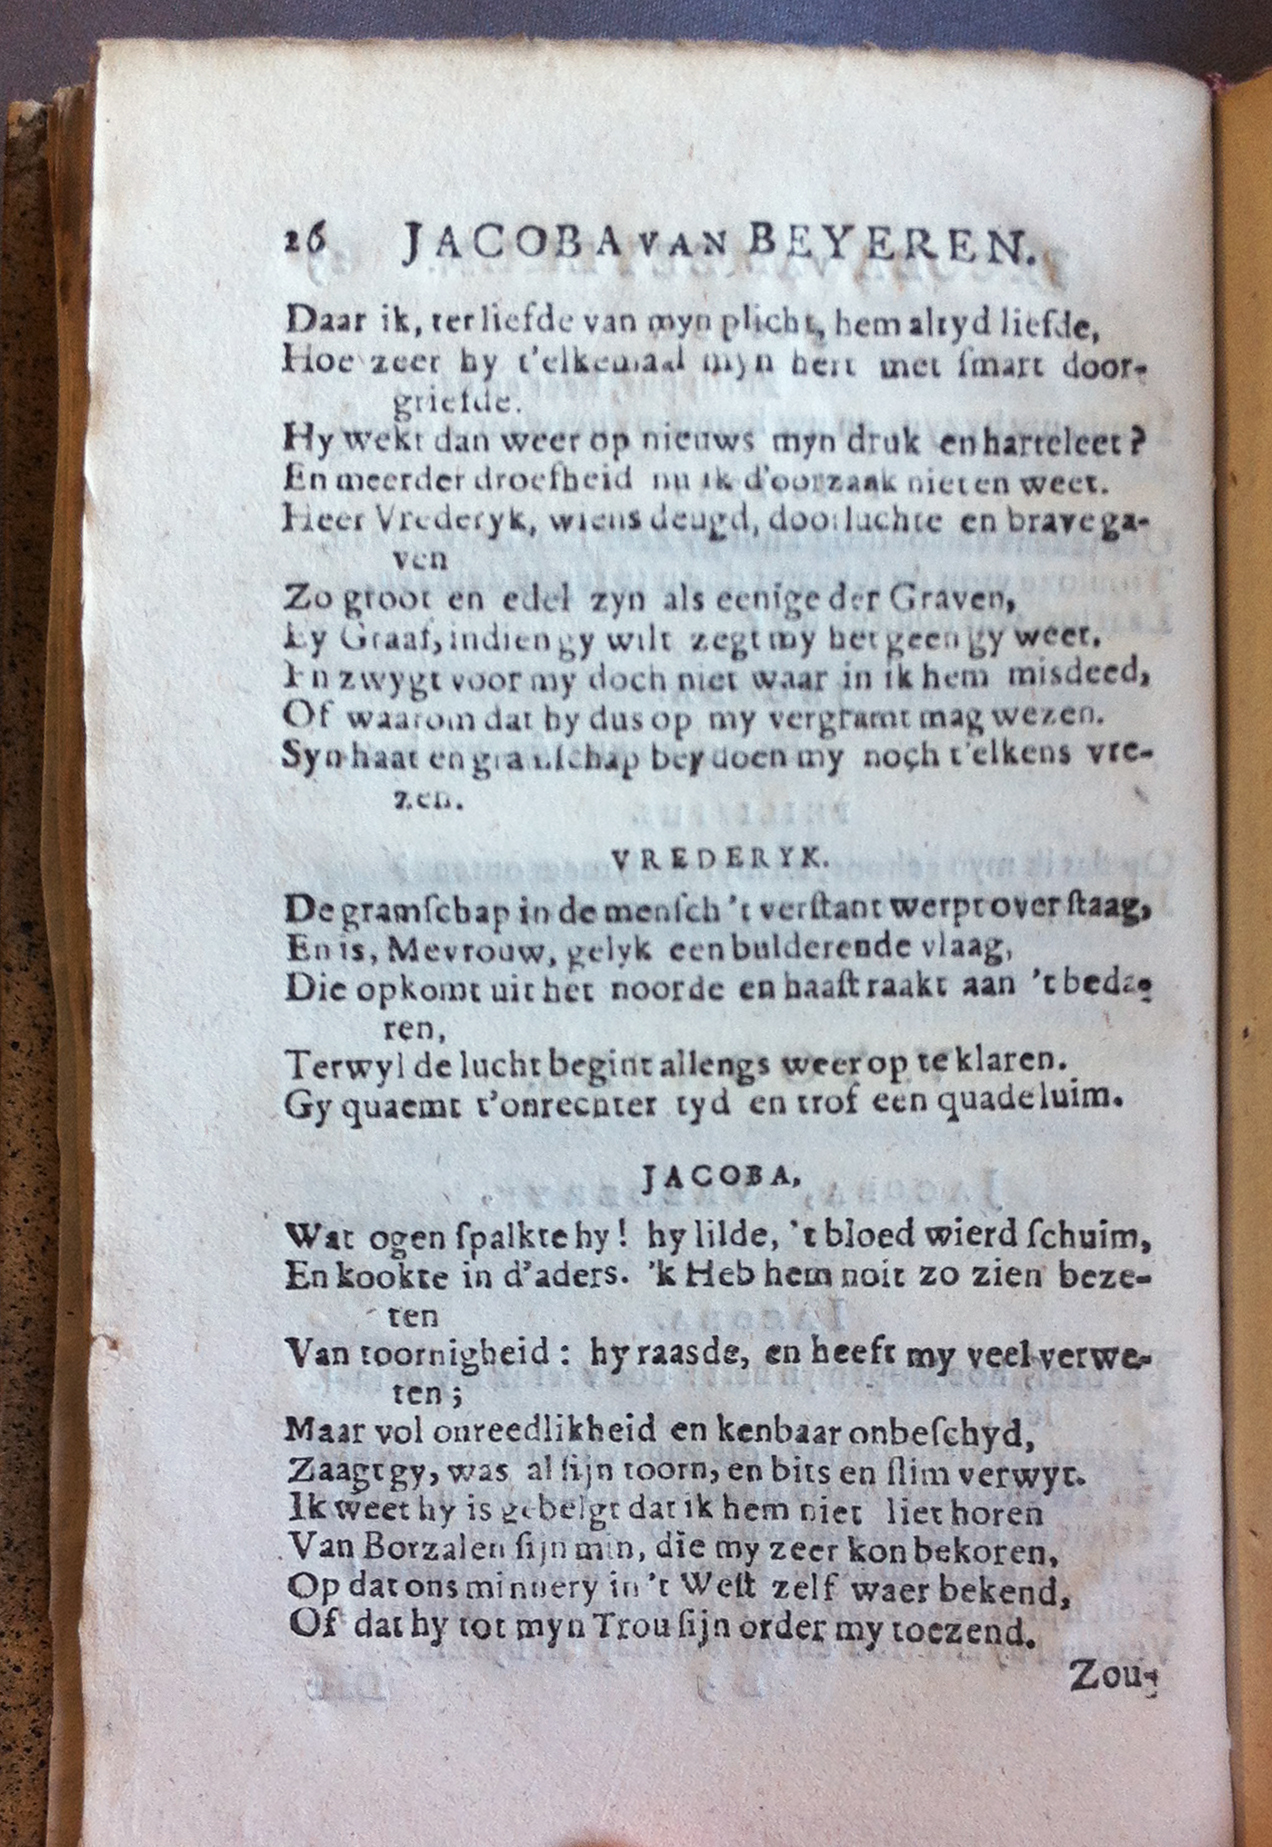 26 JACOBA VAN BEYEREN.
Daar ik, ter liefde van myn plicht, hem altyd liefde,
Hoe zeer hy t'elkemaal myn hert met ſmart door-
griefde.
Hy wekt dan weer op nieuws myn druk en harteleet?
En meerder droefheid nu ik d'oorzaak niet en weet.
Heer Vrederyk, wiens deugd, doorluchte en brave ga-
ven
Zo groot en edel zyn als eenige der Graven,
Ey Graaf, indien gy wilt zegt my het geen gy weet.
En zwygt voor my doch niet waar in ik hem misdeed,
Of waarom dat hy dus op my vergramt mag wezen.
Syn haat en gramſchap bey doen my noch t'elkens vre-
zen.
VREDERYK.
De gramſchap in de menſch 't verſtant werpt over ſtaag,
En is, Mevrouw, gelyk een bulderende vlaag,
Die opkomt uit het noorde en haaſt raakt aan 't beda-
ren,
Terwyl de lucht begint allengs weer op te klaren.
Gy quaemt t'onrechter tyd en trof een quade luim.
JACOBA,
Wat ogen ſpalkte hy! hy lilde, 't bloed wierd ſchuim,
En kookte in d'aders. 'k Heb hem noit zo zien beze-
ten
Van toornigheid: hy raasde, en heeft my veel verwe-
ten;
Maar vol onreedlikheid en kenbaar onbeſchyd,
Zaagt gy, was al ſijn toorn, en bits en ſlim verwyt.
Ik weet hy is gebelgt dat ik hem niet liet horen
Van Borzalen ſijn min, die my zeer kon bekoren,
Op dat ons minnery in 't Weſt zelf waer bekend,
Of dat hy tot myn Trou ſijn order my toezend.
Zou-